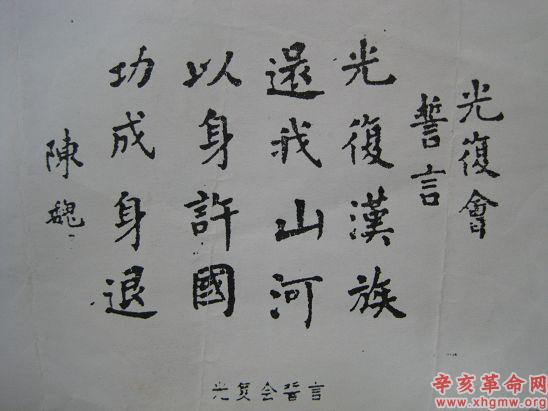 光復會
誓言
光復漢族
還我山河
以身許國
功成身退
陳魏
光复会誓言
辛亥革命网
www.xhgmw.org